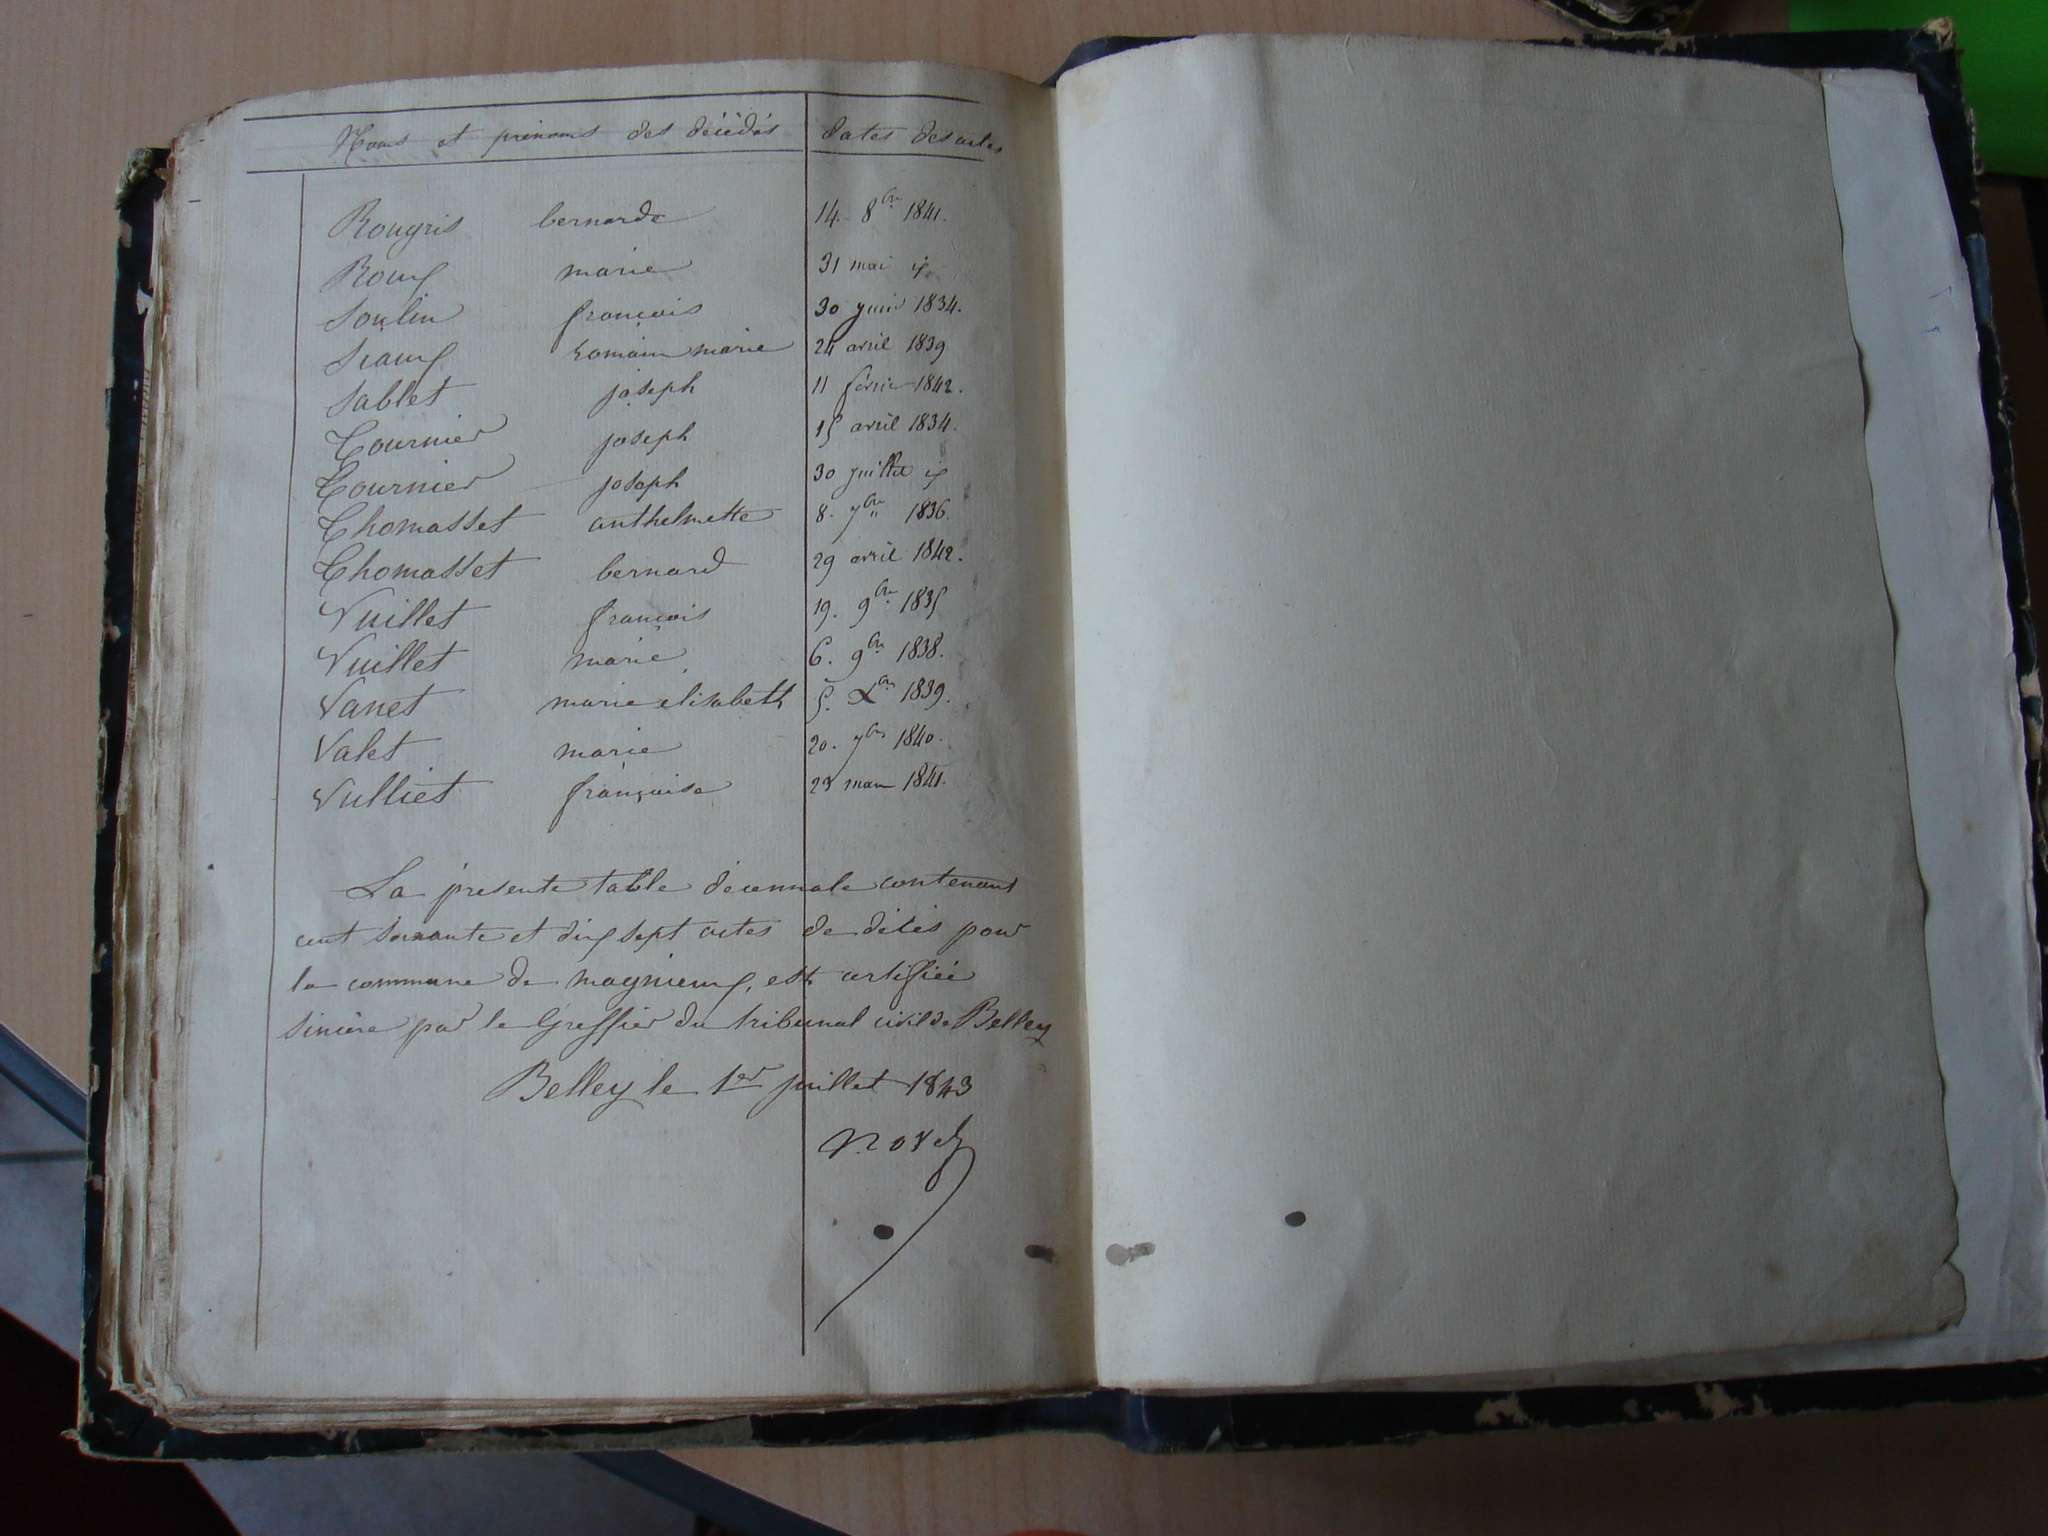 Noms et prénoms des décédés dates des actes
Rougris bernarde 14. 8bre 1841.
Roux marie 31 mai id
Soulin françois 30 juin 1834.
romain marie 24 avril 1839
Sablet joseph 11 février 1842.
Tournier joseph 15 avril 1834.
Tournier joseph 30 juillet id
Thomasset anthelmette 8. 7bre 1836.
Thomasset bernard 29 avril 1842.
Vuillet françois 19. 9bre 1835
Vuillet marie 6. 9bre 1838.
Vanet marie elisabeth 5. Xbre 1839.
Valet marie 20. 7bre 1840.
Vulliet françoise 23 mars 1841.
La présente table décennale contenant
cent soixante et dix sept actes de décès pour
la commune de magnieux, est certifiée
sincère par le Greffier du tribunal civil de Belley
Belley le 1er juillet 1843